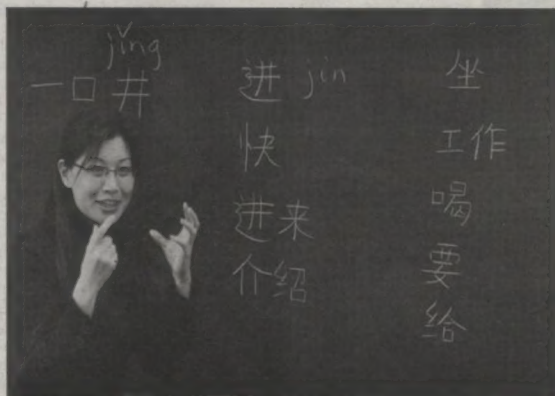 jǐng
一口井
进 jin
快
进来
介绍
坐
工作
喝
要
给